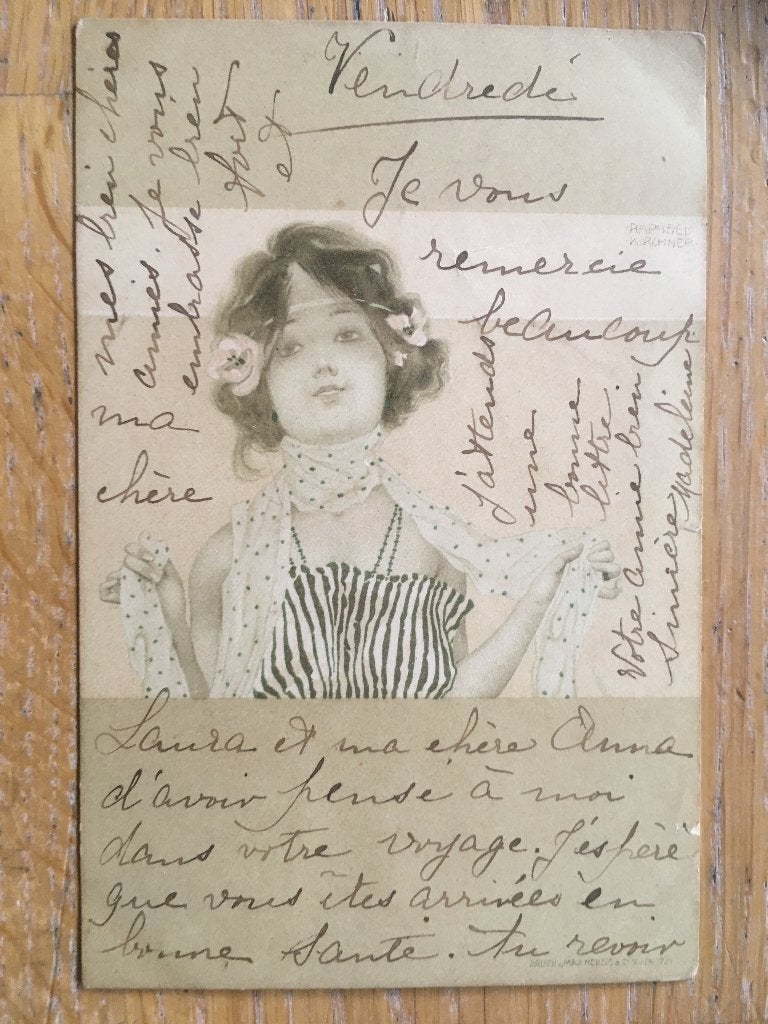 Vendredi
Je vous
remercie
beaucoup
ma
chère
Laura et ma chère Anna
d'avoir pensé à moi
dans votre voyage. J'espère
que vous êtes arrivées en
bonne santé. Au revoir
mes bien chères
amies. Je vous
embrasse bien
fort
et
j'attends
une
bonne
lettre.
Votre amie bien
sincère Madeleine
RAPHAEL
KIRCHNER